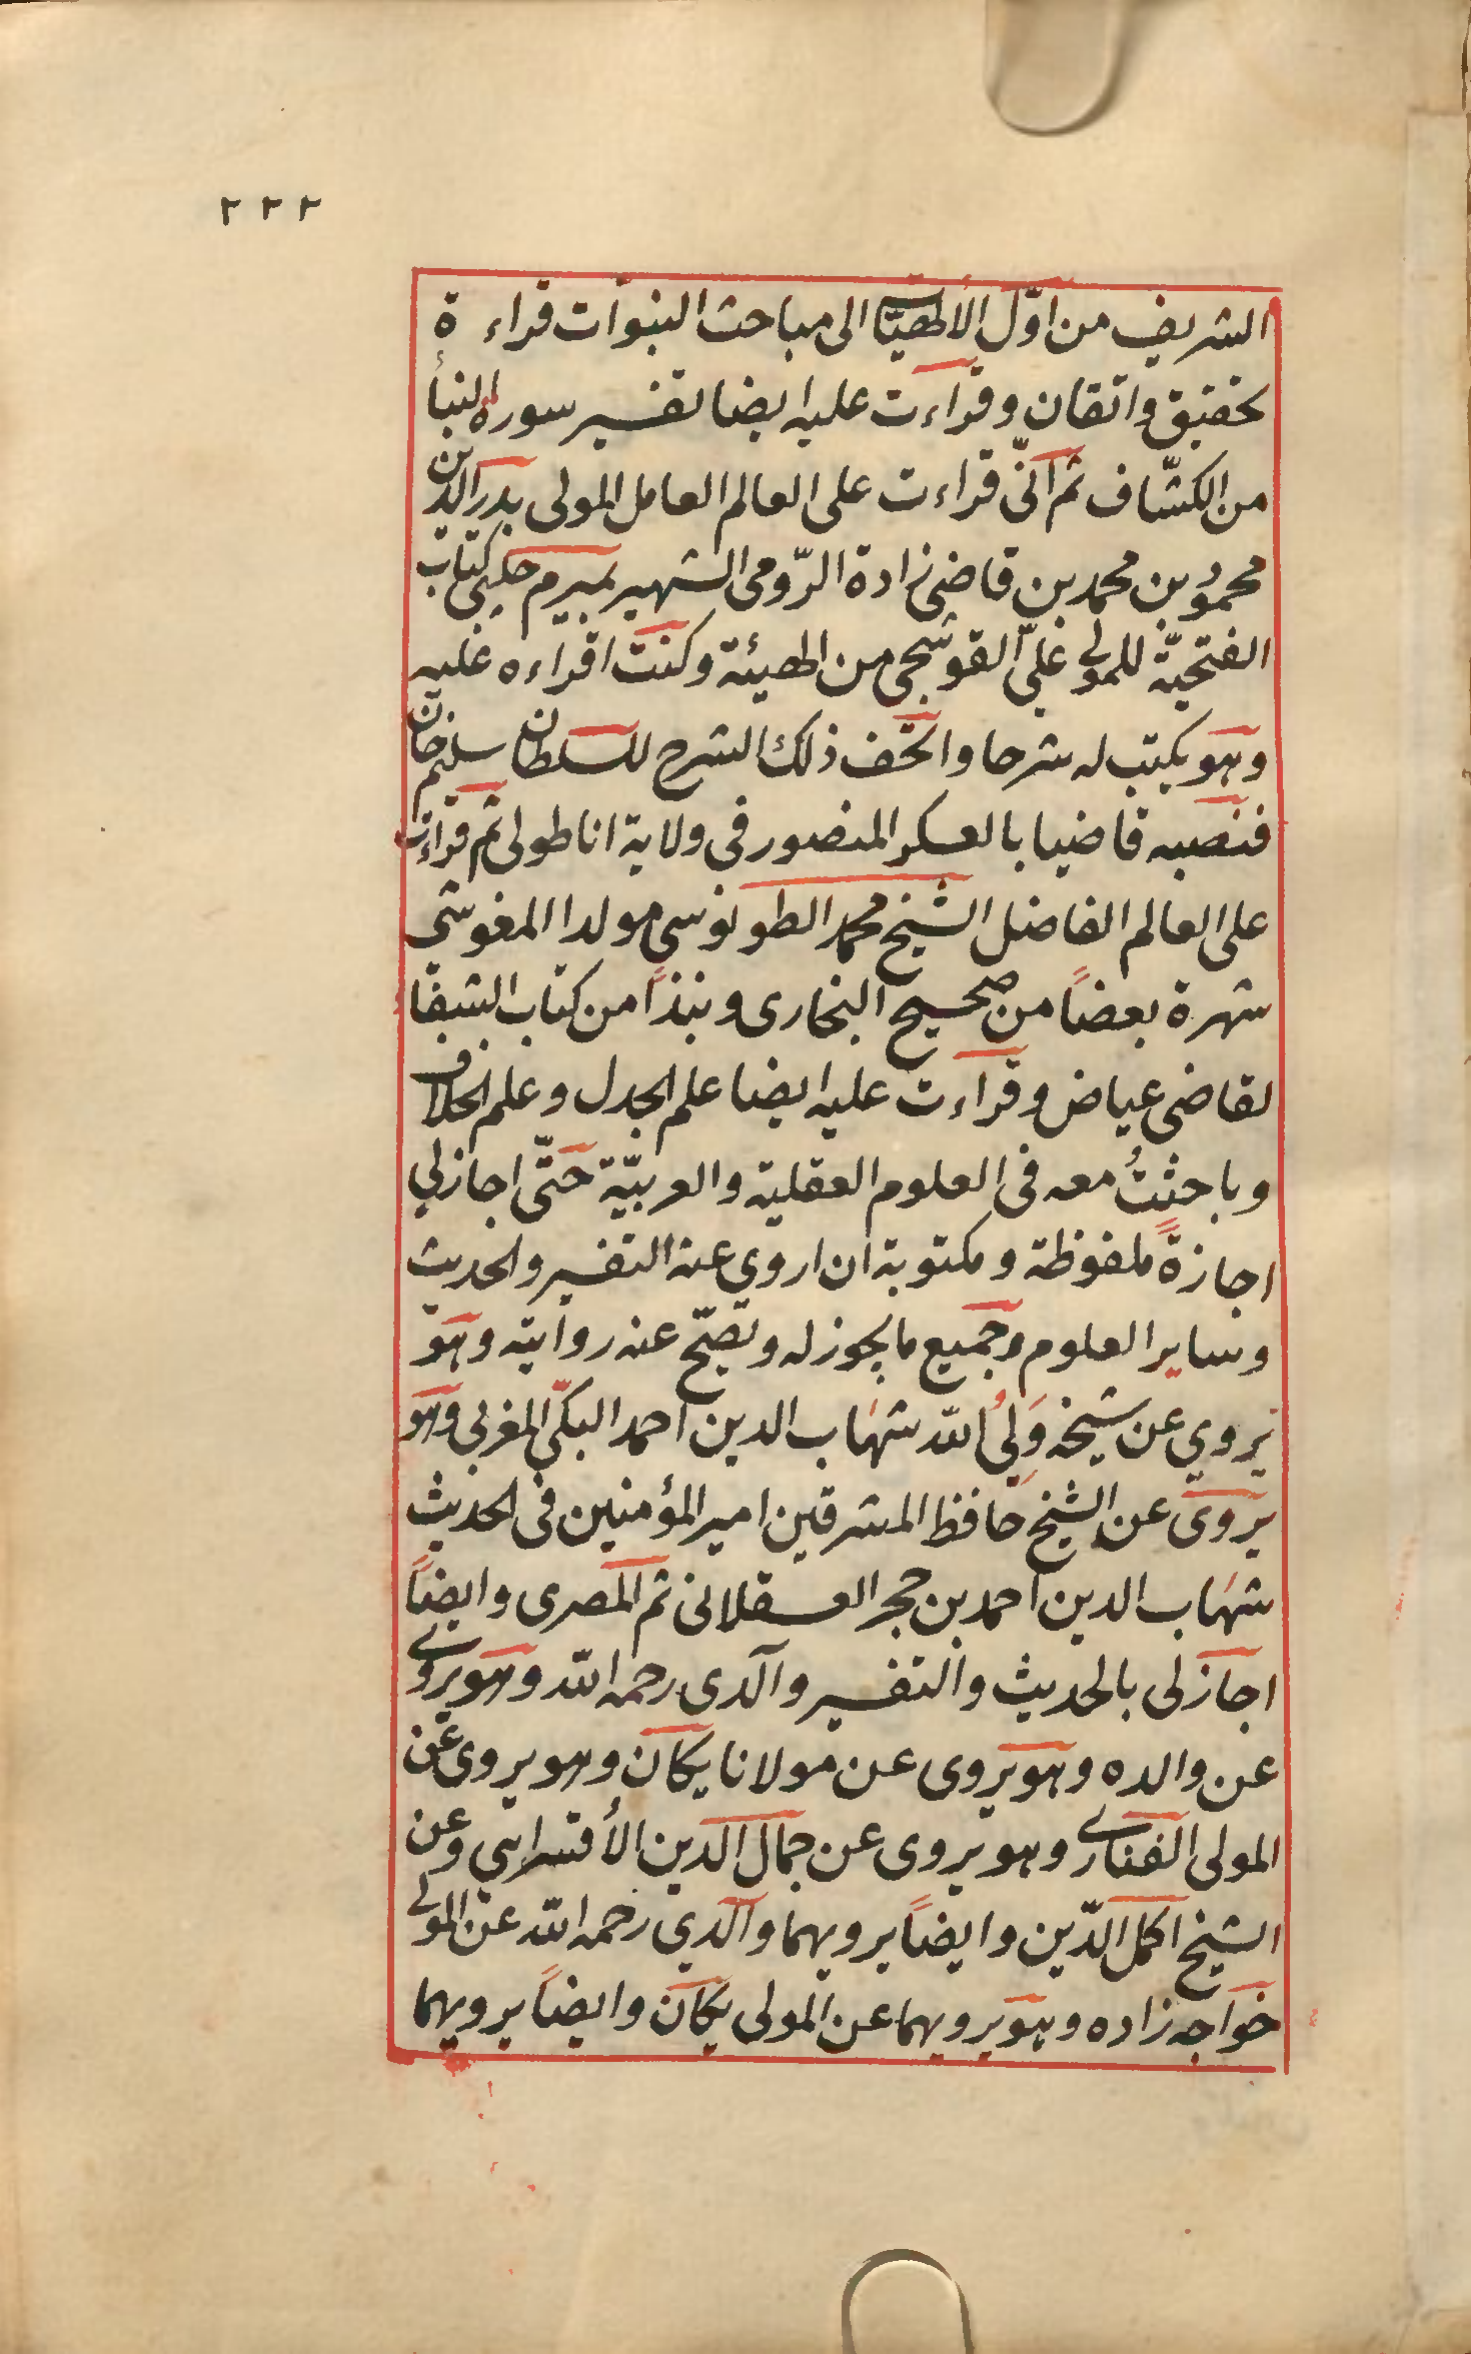 ٢٢٢
الشريف من اوّل الالهيّات الى مباحث النبوات قراءة
تحقيق واتقان وقراءت عليه ايضا تفسير سورة النبأ
من الكشّاف ثم انّى قراءت على العالم العامل المولى بدر الدين
محمود بن محمد بن قاضى زادة الرّومى الشهير بميرم چلبى كتاب
الفتحيّة للمولى علىّ القوشجى من الهيئة وكنت اقراءه عليه
وهو يكتب له شرحا واتحف ذلك الشرح للسلطان سليم خان
فنصبه قاضيا بالعسكر المنصور فى ولاية اناطولى ثم قراءت
على العالم الفاضل الشيخ محمد الطونوسى مولدا المغوشى
شهرة بعضاً من صحيح البخارى ونبذاً من كتاب الشفا
لقاضى عياض وقراءت عليه ايضا علم الجدل وعلم الخلاف
وباحثتُ معه فى العلوم العقلية والعربيّة حتّى اجازلي
اجازةً ملفوظة ومكتوبة ان اروي عنه التفسير والحديث
وساير العلوم وجميع ما يجوز له وتصحّ عنه روايته وهو
يروي عن شيخه وَلىُّ اللّه شهاب الدين احمد البكّى المغربى وهو
يروى عن الشيخ حافظ المشرقين امير المؤمنين فى الحديث
شهاب الدين احمد بن حجر العسقلانى ثم المصرى وايضاً
اجاز لى بالحديث والتفسير والدى رحمه اللّه وهو يروى
عن والده وهو يروى عن مولانا يكان وهو يروى عن
المولى الفنارى وهو يروى عن جمال الدين الأقسرايي وعن
الشيخ اكمل الدّين وايضاً يرويهما والدي رحمه اللّه عن المولى
خواجه زاده وهو يرويهما عن المولى يكان وايضاً يرويهما